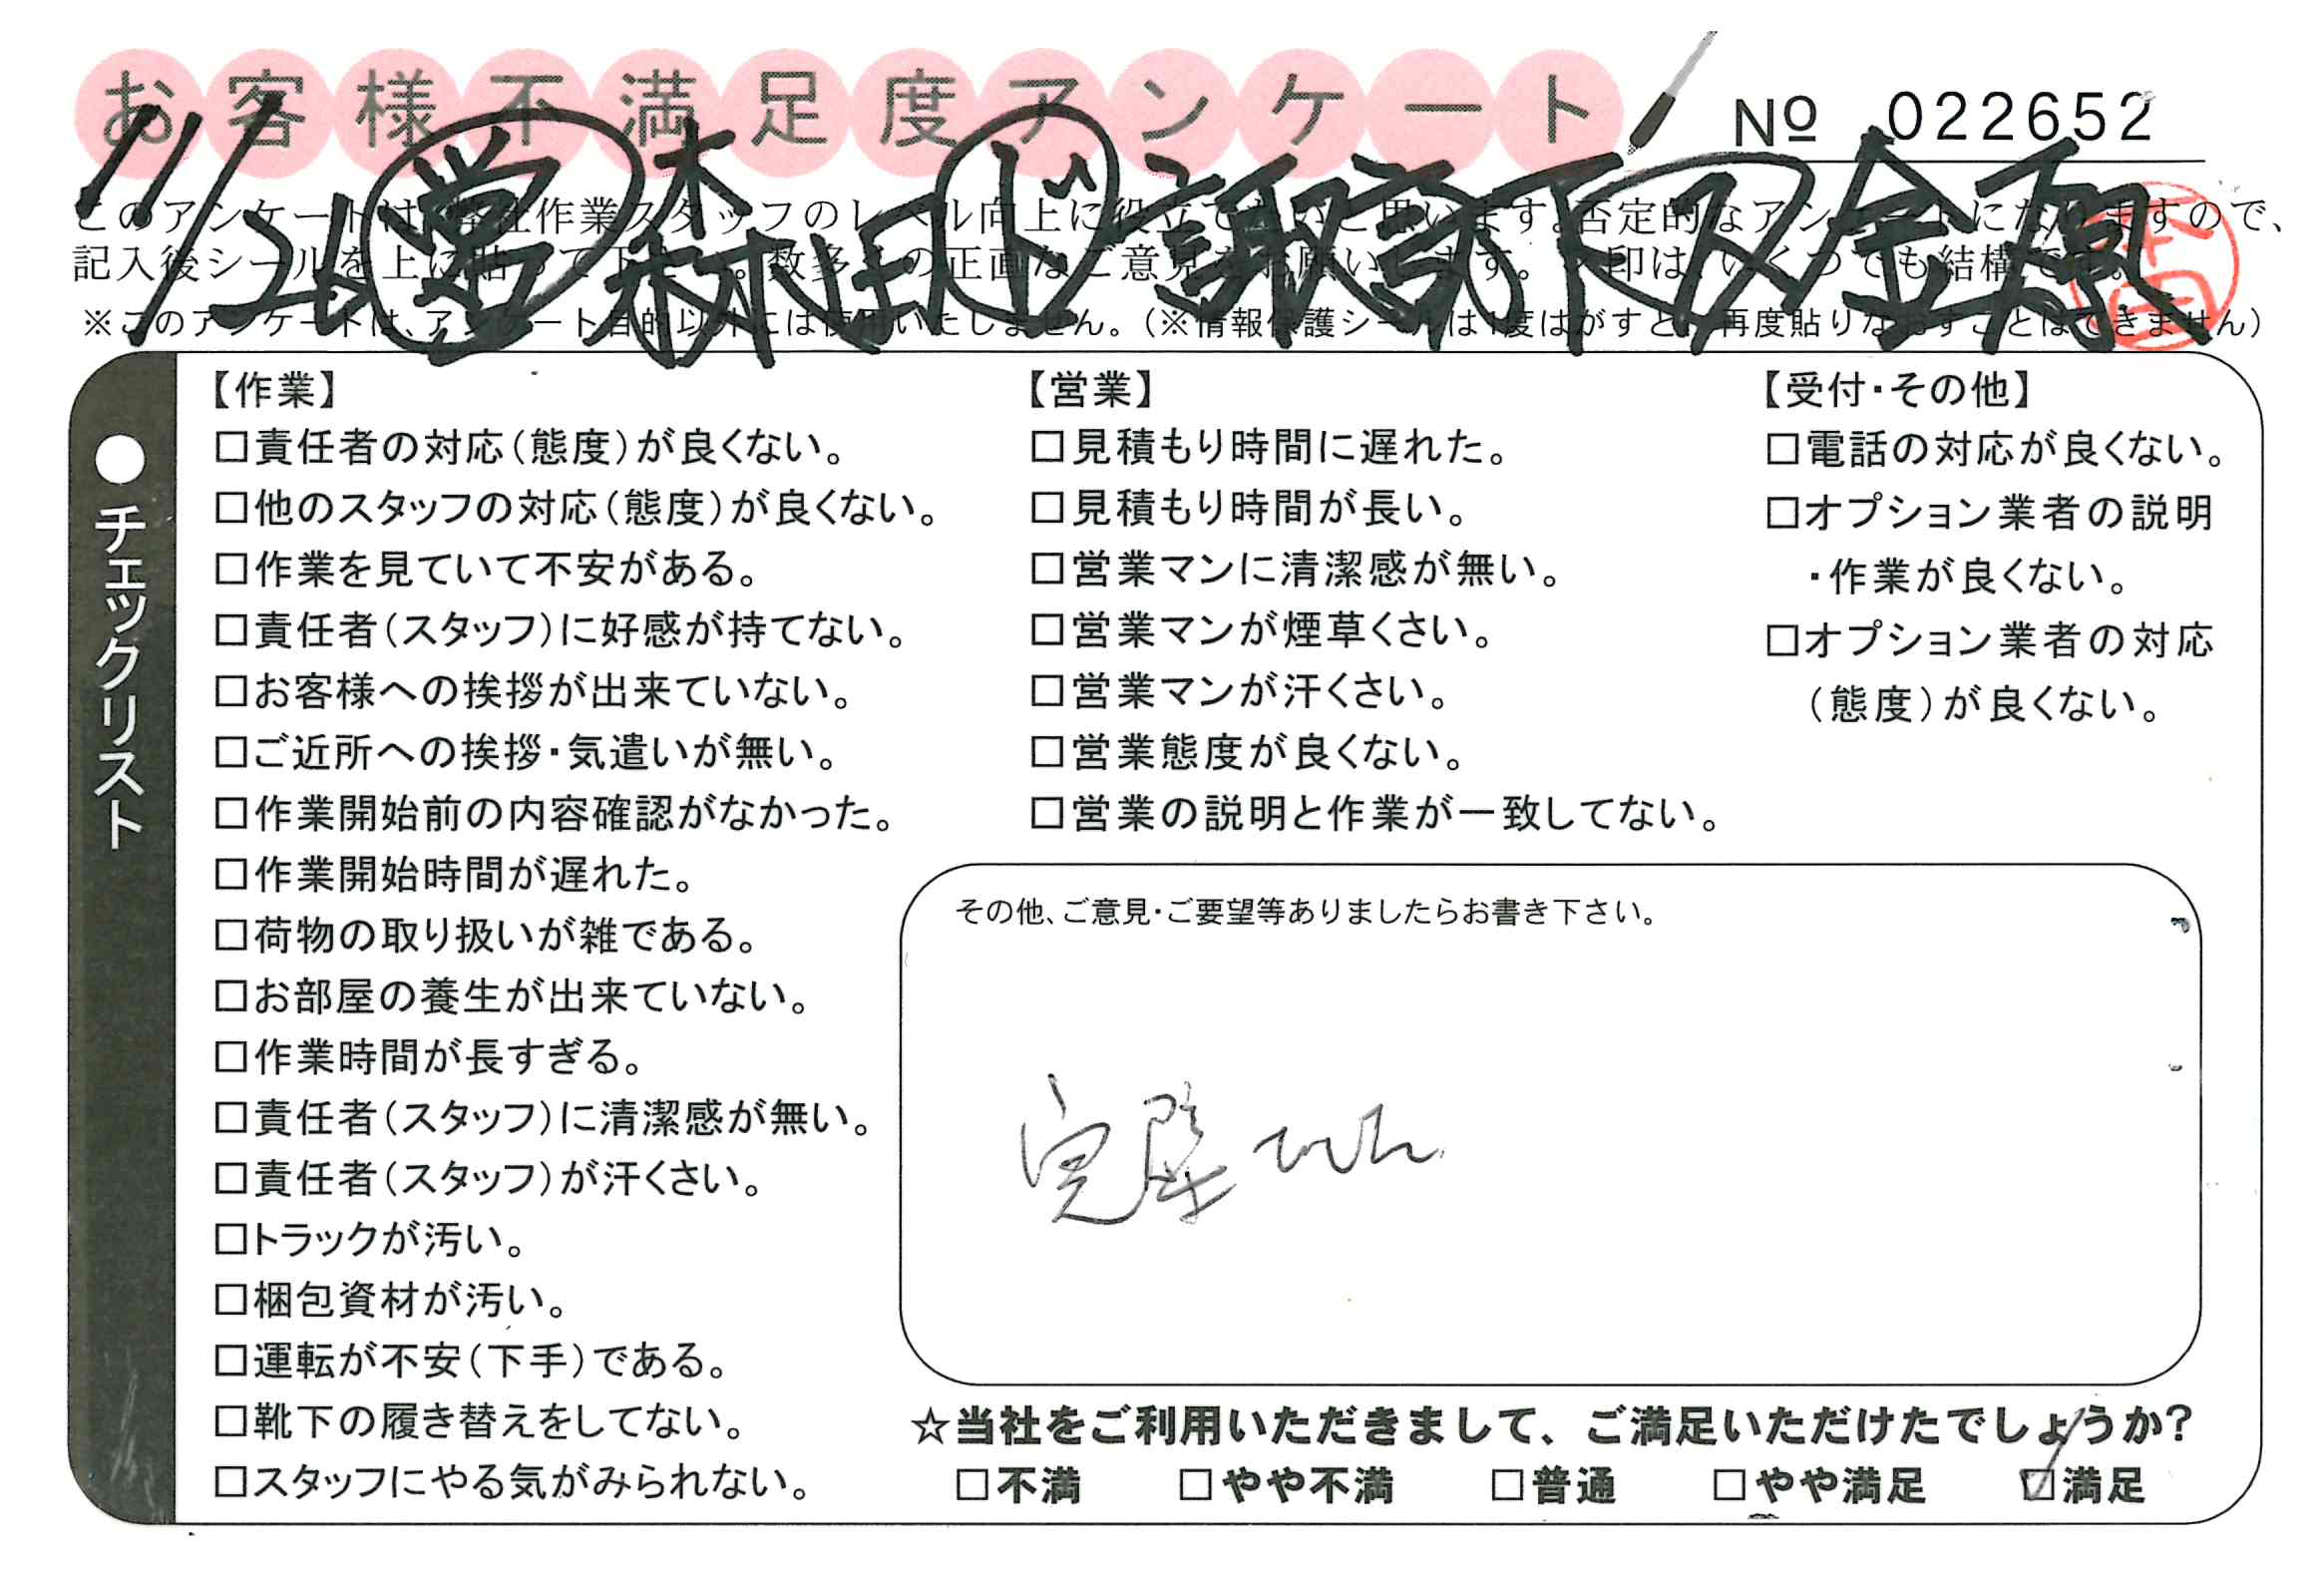 お客様不満足度アンケート
№ 022652
11/26 営 森田 ド 諏訪下 金原
このアンケートは、弊社作業スタッフのレベル向上に役立てたいと思います。否定的なアンケートになりますので、
記入後シールを上に貼って下さい。数多くの正直なご意見をお願いします。 印は、いくつでも結構です。
※このアンケートは、アンケート目的以外には使用いたしません。（※情報保護シールは1度はがすと、再度貼りなおすことはできません）
●チェックリスト
【作業】
□責任者の対応（態度）が良くない。
□他のスタッフの対応（態度）が良くない。
□作業を見ていて不安がある。
□責任者（スタッフ）に好感が持てない。
□お客様への挨拶が出来ていない。
□ご近所への挨拶・気遣いが無い。
□作業開始前の内容確認がなかった。
□作業開始時間が遅れた。
□荷物の取り扱いが雑である。
□お部屋の養生が出来ていない。
□作業時間が長すぎる。
□責任者（スタッフ）に清潔感が無い。
□責任者（スタッフ）が汗くさい。
□トラックが汚い。
□梱包資材が汚い。
□運転が不安（下手）である。
□靴下の履き替えをしてない。
□スタッフにやる気がみられない。
【営業】
□見積もり時間に遅れた。
□見積もり時間が長い。
□営業マンに清潔感が無い。
□営業マンが煙草くさい。
□営業マンが汗くさい。
□営業態度が良くない。
□営業の説明と作業が一致してない。
【受付・その他】
□電話の対応が良くない。
□オプション業者の説明
・作業が良くない。
□オプション業者の対応
（態度）が良くない。
その他、ご意見・ご要望等ありましたらお書き下さい。
完璧でした
☆当社をご利用いただきまして、ご満足いただけたでしょうか？
□不満 □やや不満 □普通 □やや満足 ☑満足